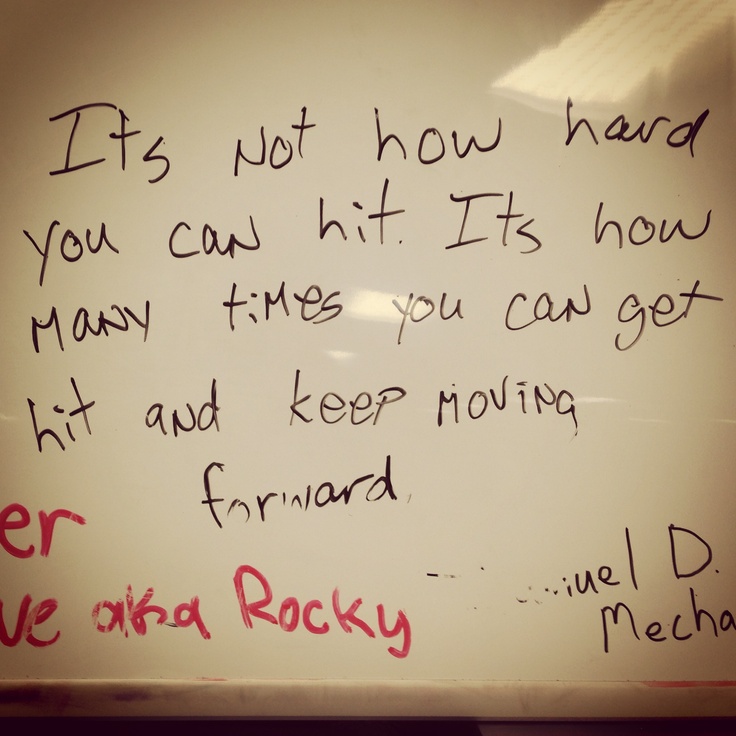 Its Not how hard
you can hit. Its how
many times you can get
hit and keep moving
forward.
er
D.
ve aka Rocky
Mecha